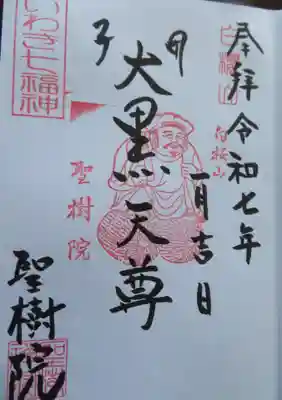 奉拝 令和七年
一月吉日
甲子
大黒天尊
聖樹院
聖樹院
いわき七福神